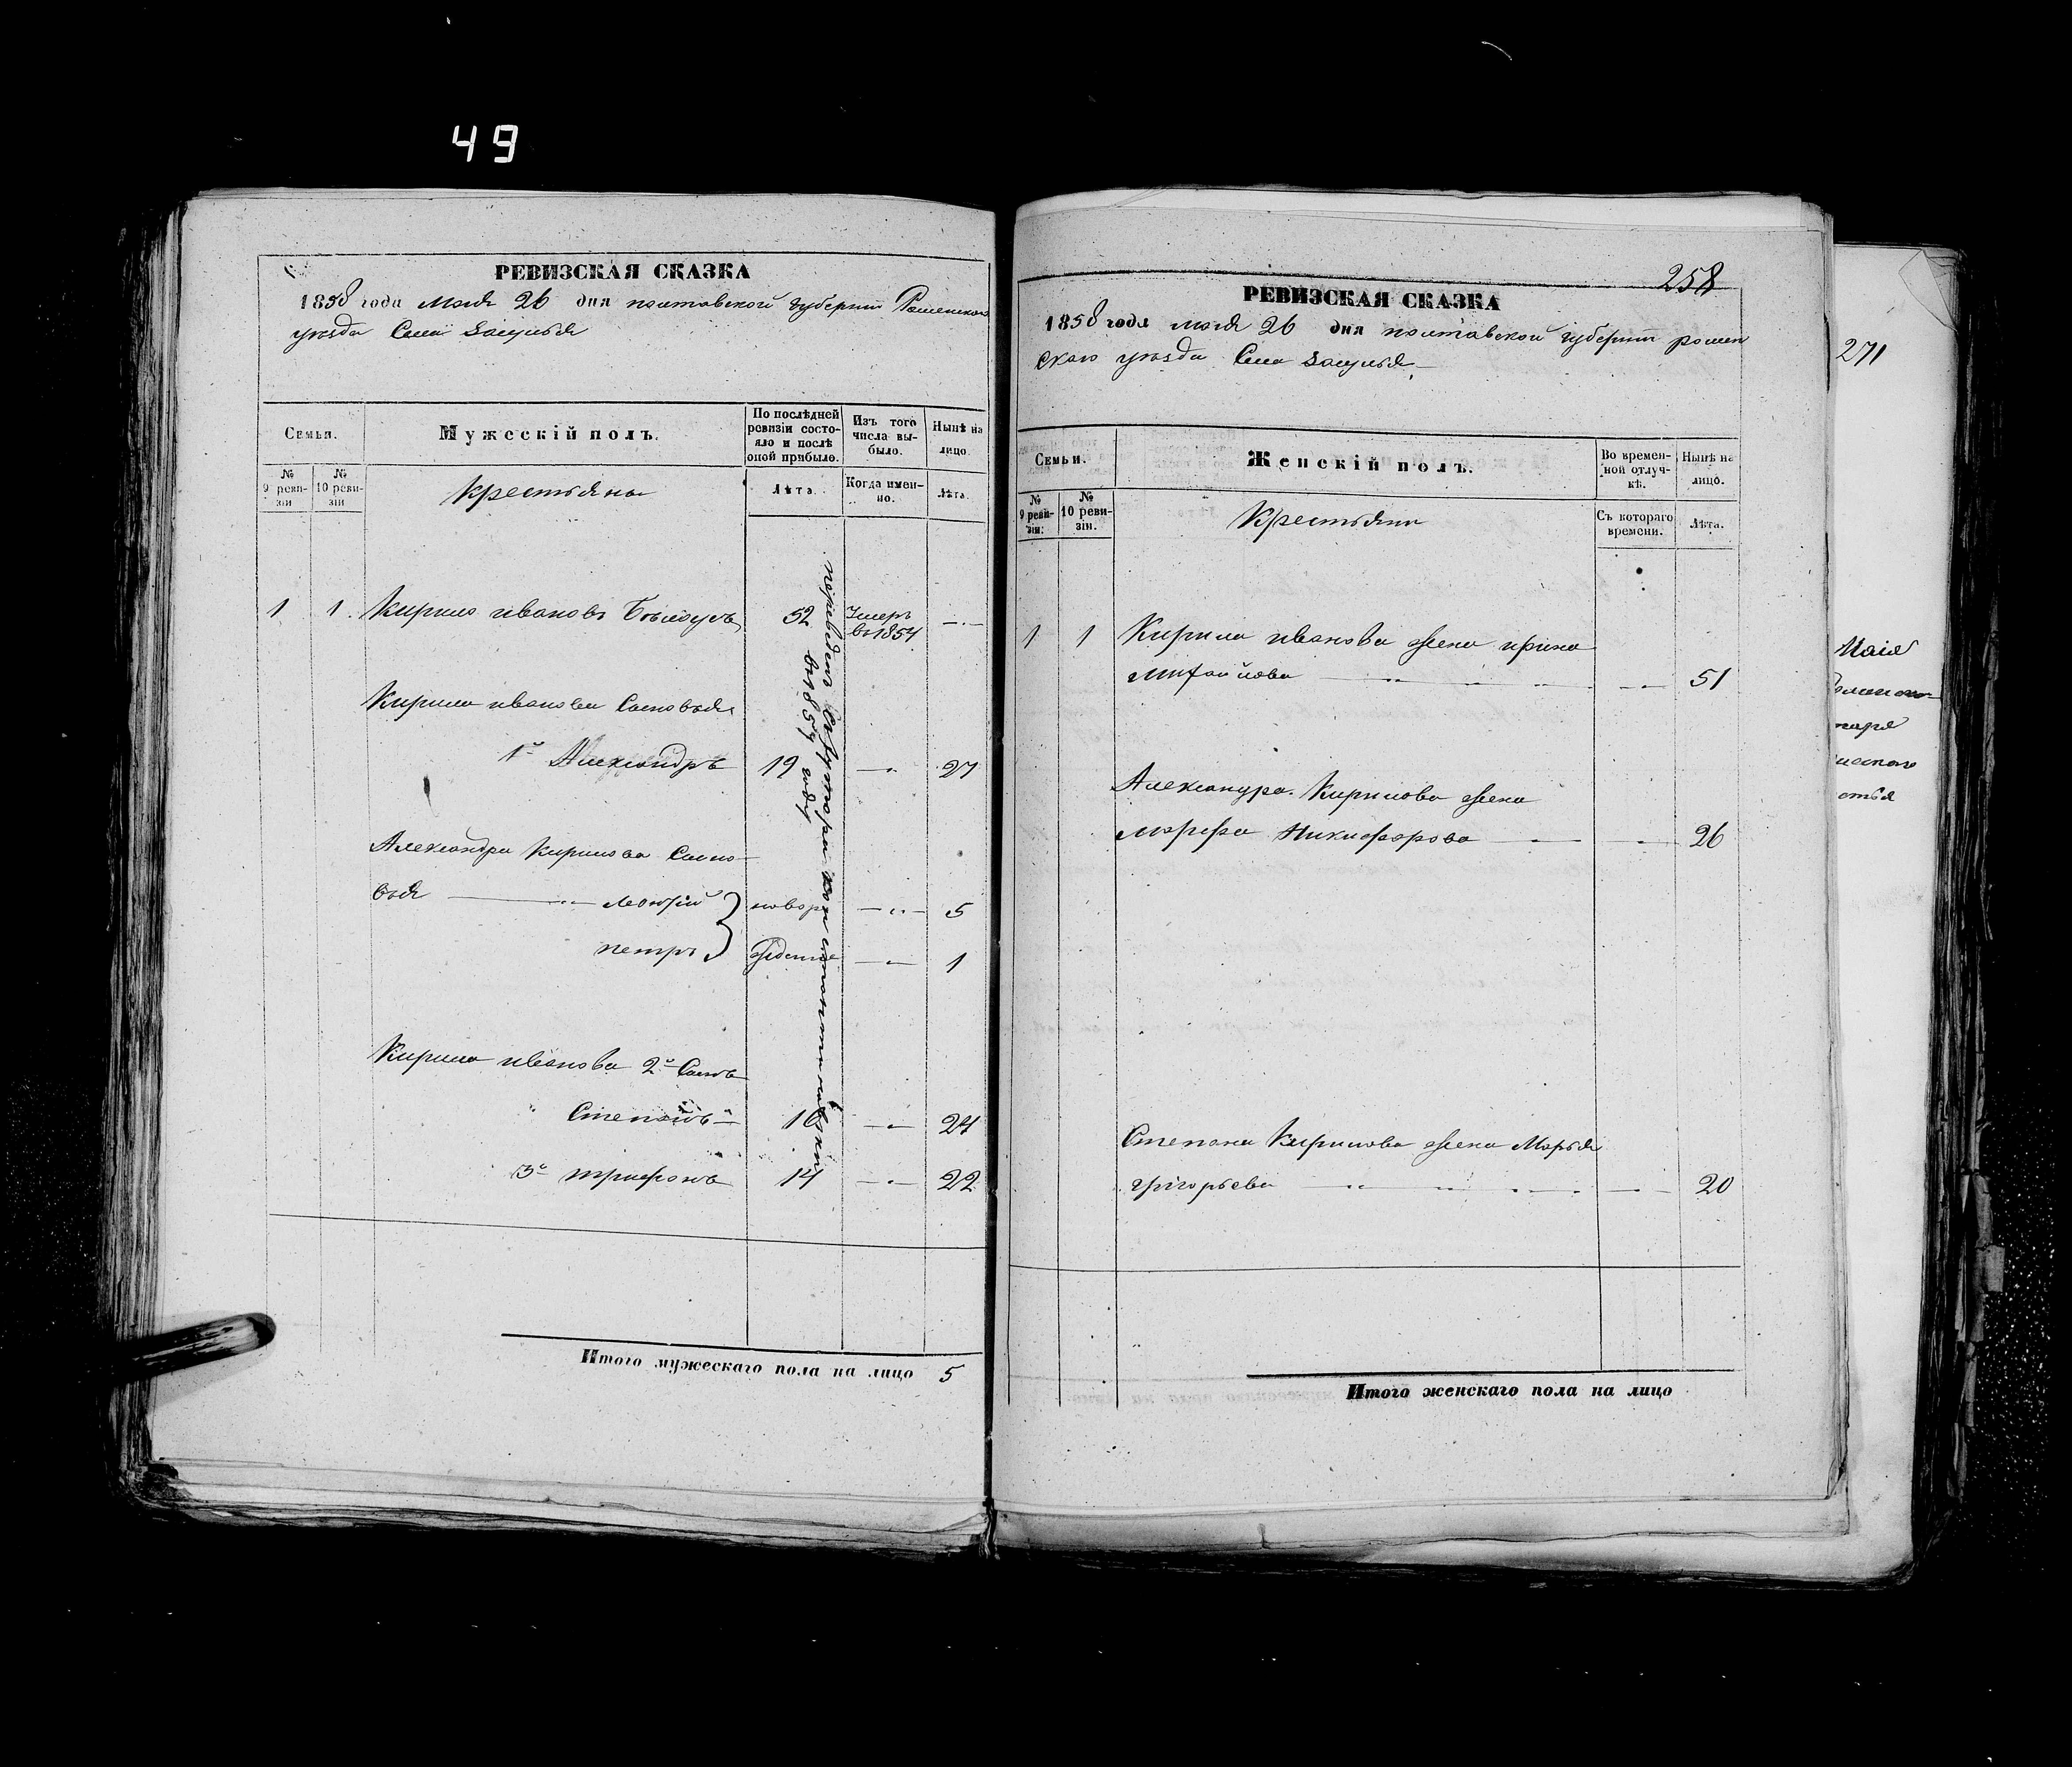 49
РЕВИЗСКАЯ СКАЗКА
1858 года Маія 26 дня полтавской губерніи Роменскаго
уѣзда Села Засулья
Семьи.
Мужескій полъ.
По послѣдней ревизіи состояло и послѣ оной прибыло.
Изъ того числа выбыло.
Нынѣ на лицо.
№ 9 ревизіи
№ 10 ревизіи
Крестьяне
Лѣта.
Когда именно.
Лѣта.
1 1. Кирило иванов Бѣлоусъ 52 Умеръ в 1854
Кирила иванова Сыновья
1й Александръ 19 27
Александра Кирилова Сыно-
вья Леонтій новоро 5
петръ жденные 1
Кирила иванова 2й Сынъ
Степанъ 16 24
3й трифонъ 14 22
переведены из
в 1854 году
Итого мужескаго пола на лицо 5
258
РЕВИЗСКАЯ СКАЗКА
1858 года маія 26 дня полтавской губерніи ромен
скаго уѣзда Села Засулья
Семьи.
Женскій полъ.
Во временной отлучкѣ.
Нынѣ на лицо.
№ 9 ревизіи.
№ 10 ревизіи.
Крестьяни
Съ котораго времени.
Лѣта.
1 1 Кирила иванова жена ирина
михайлова 51
Александра Кирилова жена
марфа Никифорова 26
Степана Кирилова жена Марья
григорьева 20
Итого женскаго пола на лицо
271
Маія